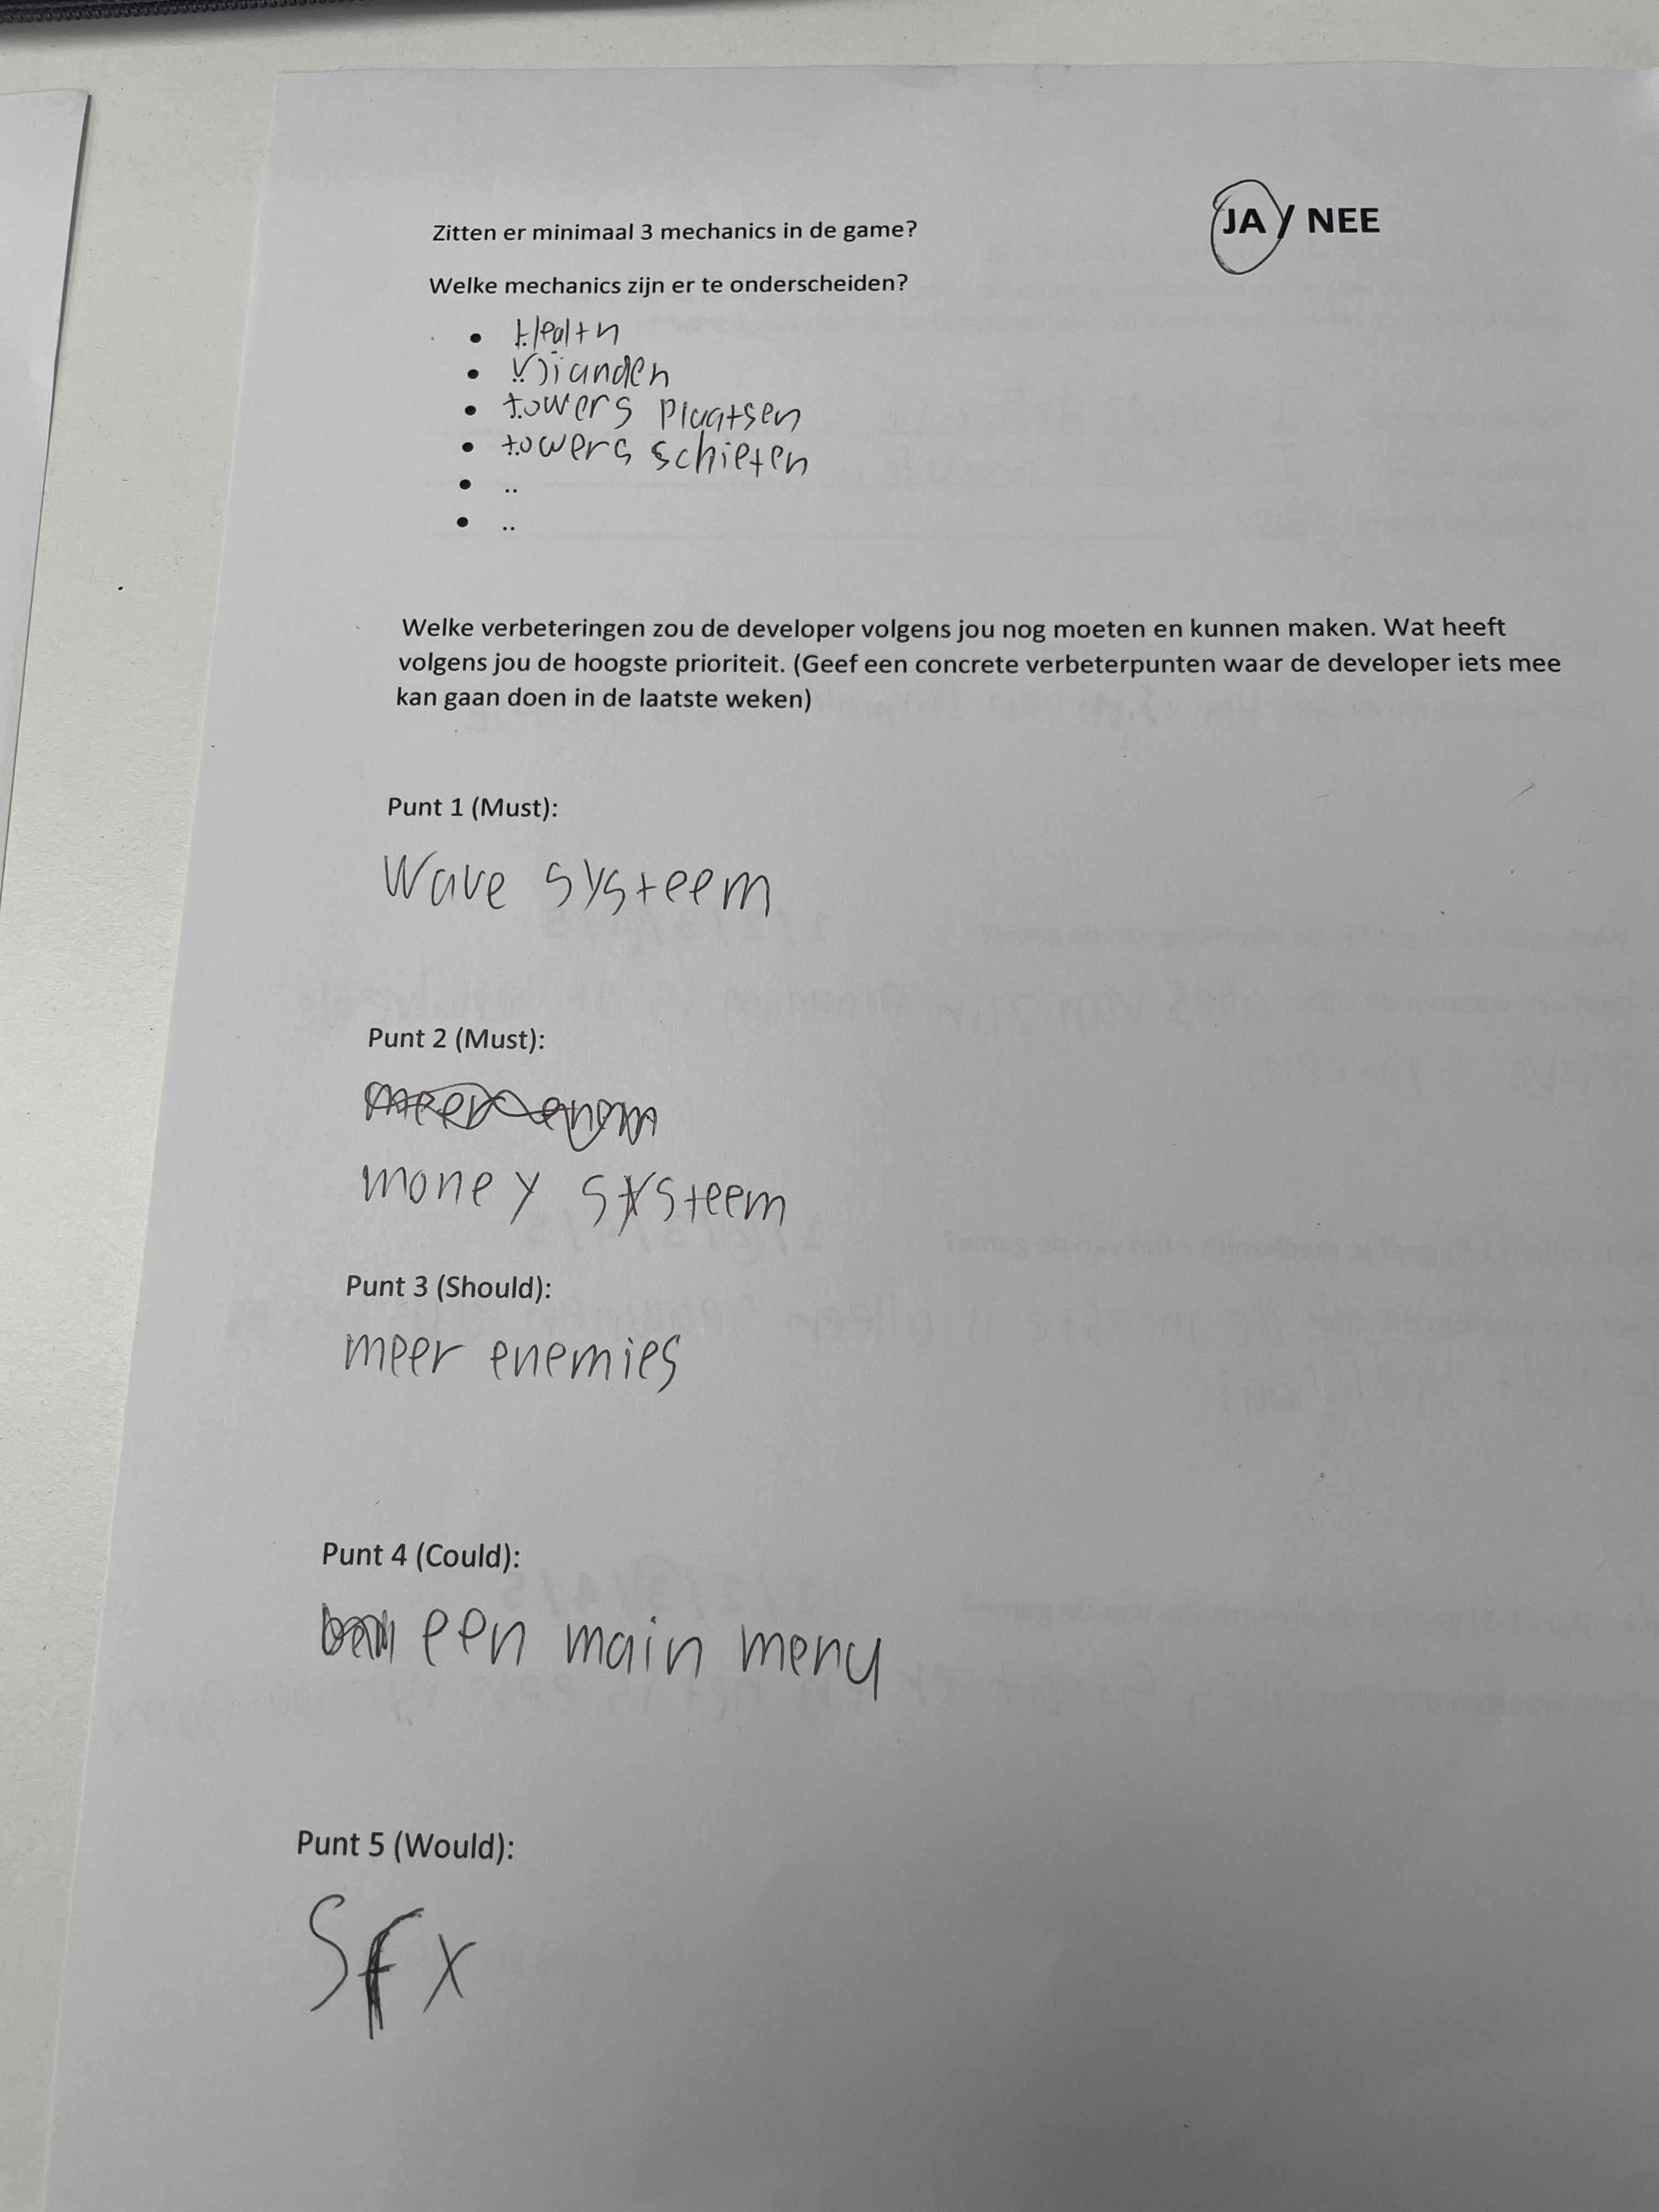 Zitten er minimaal 3 mechanics in de game? JA / NEE
Welke mechanics zijn er te onderscheiden?
• Health
• Vijanden
• towers plaatsen
• towers schieten
• ..
• ..
Welke verbeteringen zou de developer volgens jou nog moeten en kunnen maken. Wat heeft
volgens jou de hoogste prioriteit. (Geef een concrete verbeterpunten waar de developer iets mee
kan gaan doen in de laatste weken)
Punt 1 (Must):
Wave systeem
Punt 2 (Must):
money systeem
Punt 3 (Should):
meer enemies
Punt 4 (Could):
een main menu
Punt 5 (Would):
Sfx